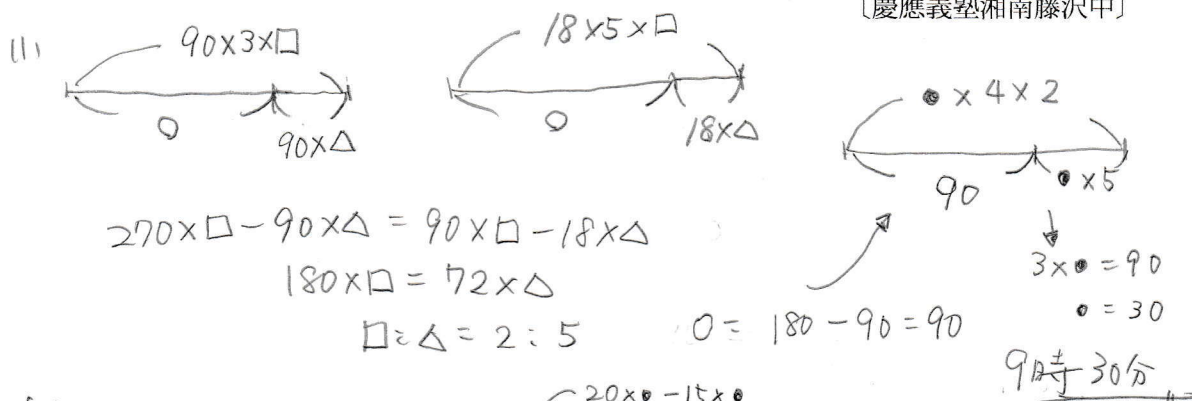 〔慶應義塾湘南藤沢中〕
(1)
90×3×□
○
90×△
18×5×□
○
18×△
●×4×2
90
●×5
270×□-90×△=90×□-18×△
180×□=72×△
□:△=2:5
○=180-90=90
3×●=90
●=30
9時30分
20×●-15×●